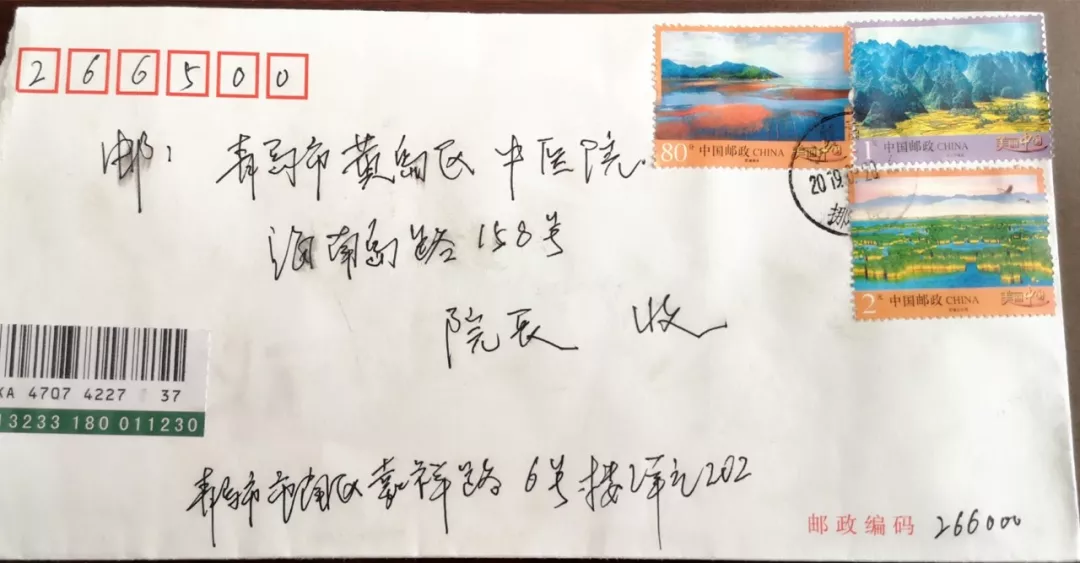 266500
邮：青岛市黄岛区中医院
海南岛路158号
院长 收
80分 中国邮政 CHINA 美丽中国
1元 中国邮政 CHINA 美丽中国
2元 中国邮政 CHINA 美丽中国
2019
XA 4707 4227 37
13233 180 001230
青岛市市南区嘉祥路6号楼2单元202
邮政编码 266000